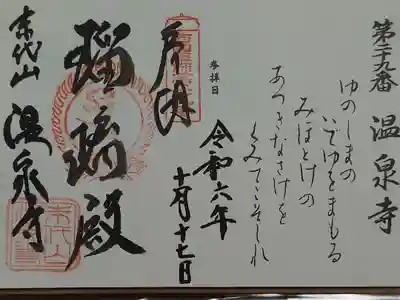 第二十九番 温泉寺
ゆのしまの
いでゆをまもる
みほとけの
あつきなさけを
くみてこそしれ
参拝日
令和六年
十月十七日
瑠璃殿
末代山 温泉寺